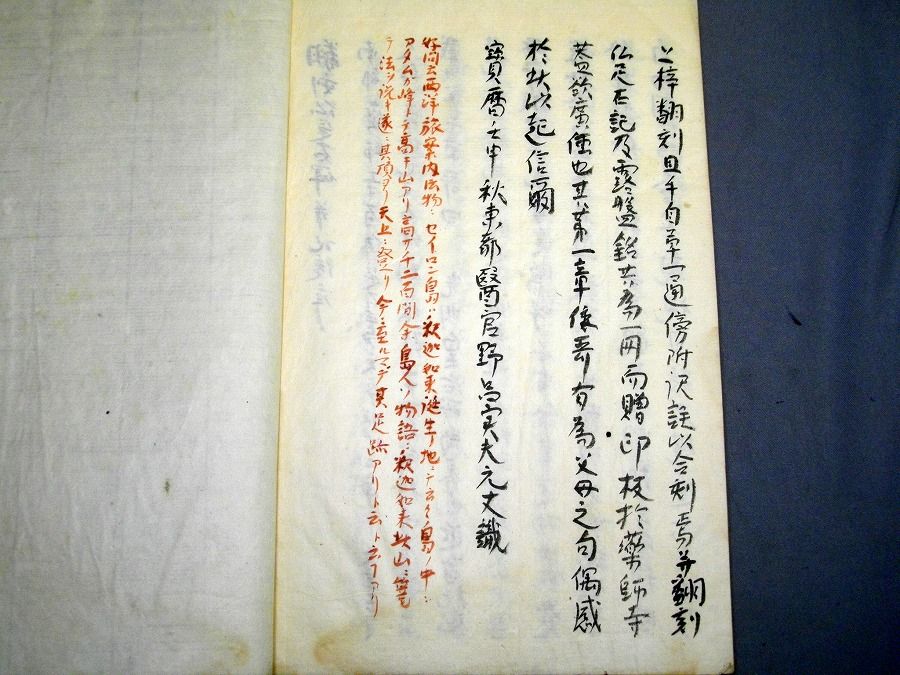 上梓翻刻且千自草一通傍附訳註以合刻焉并翻刻
仏足石記及露盤銘共為一冊而贈印板於薬師寺
蓋欲廣傳也其第一章係吾有為父母之句偶感
於此以起信爾
寳暦壬申秋東都醫官野呂実夫元丈識
好問云西洋旅案内ニ云物ニセイロン島ハ釈迦如来誕生ノ地ニテ云々島ノ中ニ
アタムガ峰トテ高キ山アリ高サ千二百間余島人ノ物語ニ釈迦如来此山ニ登
テ法ヲ説キ遂ニ其頂ヨリ天上ニ登リ今ニ至ルマデ其足跡アリト云ト云フアリ